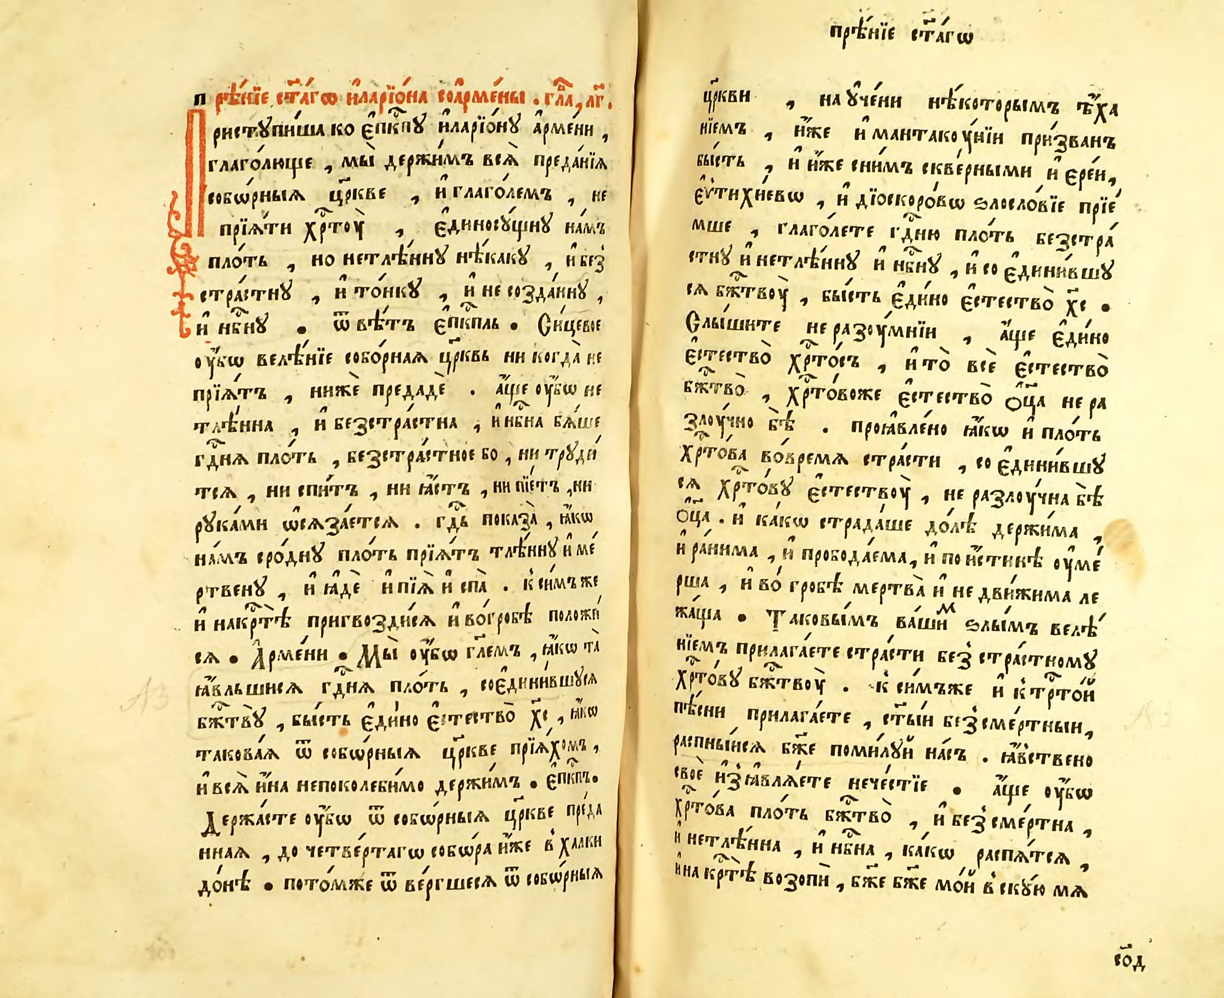 прѣ́нїе ст҃а́гѡ и҆ларїѡ́на соа҆рме́ны . гла҃, лг҃.
Приступи́ша ко є҆пⷭ҇кпꙋ и҆ларїѡ́нꙋ а҆рме́ни ,
глаго́люще , мы̀ держи́мъ всѧ̀ преда́нїѧ
собѡ́рныѧ цр҃кве , и҆ глаго́лемъ , не
прїѧ́ти хрⷭ҇тоу̀ , є҆диносꙋ́щнꙋ на́мъ
пло́ть , но нетлѣ́ннꙋ нѣ́какꙋ , и҆ без̾
стра́стнꙋ , и҆ то́нкꙋ , и҆ не созда́ннꙋ ,
и҆ нбⷭ҇нꙋ . ѿвѣ́тъ є҆пⷭ҇кпль . Си́цевое
оу҆́бѡ велѣ́нїе собо́рнаѧ цр҃квь ни когда̀ не
прїѧ́тъ , нижѐ предадѐ . а҆́ще оу҆́бѡ не
тлѣ́нна , и҆ безстра́стна , и҆ нбⷭ҇на бѧ́ше
гдⷭ҇нѧ пло́ть , безстра́стное бо , ни трꙋди́
тсѧ , ни спи́тъ , ни ꙗ҆́стъ , ни пїе́тъ , ни
рꙋка́ми ѡ҆сѧза́етсѧ . гдⷭ҇ь показа̀ , ꙗ҆́кѡ
на́мъ сро́днꙋ пло́ть прїѧ́тъ тлѣ́ннꙋ и҆ ме́
ртвенꙋ , и҆ ꙗ҆дѐ и҆ пїѧ̀ и҆ спа̀ . к̾ си́мъ же
и҆ накрⷭ҇тѣ̀ пригвозди́сѧ и҆ во́гробѣ положи́
сѧ . А҆рме́ни . Мы̀ оу҆́бѡ гл҃емъ , ꙗ҆́кѡ та̀
ꙗ҆́вльшисѧ гдⷭ҇нѧ пло́ть , соє҆дини́вшꙋсѧ
бжⷭ҇твꙋ̀ , бы́сть є҆ди́но є҆стество̀ хс҃ , ꙗ҆́кѡ
такова́ѧ ѿ собѡ́рныѧ цр҃кве прїѧ́хомъ ,
и҆ всѧ̀ и҆́на непоколеби́мо держи́мъ . є҆пⷭ҇кпъ.
Держа́сте оу҆́бѡ ѿ собѡ́рныѧ цр҃кве пре́да
ннаѧ , до четве́ртагѡ собѡ́ра и҆́же в̾ халки
до́нѣ . пото́мже ѿ ве́ргшесѧ ѿ собѡ́рныѧ
прѣ́нїе ст҃а́гѡ
цр҃кви , на оу҆че́ни нѣ́которымъ ѣ҆́ха
нїемъ , и҆́же и҆ мантакоу́нїи при́званъ
бы́сть , и҆ и҆́же сни́мъ скве́рными и҆ є҆ре́и,
є҆ѵти́хїевѡ , и҆ дїоско́ровѡ ѕлосло́вїе прїе́
мше , глаго́лете гдⷭ҇ню пло́ть безстра́
стнꙋ и҆ нетлѣ́ннꙋ и҆ нбⷭ҇нꙋ , и҆ со є҆дини́вшꙋ
сѧ бжⷭ҇твоу̀ , бы́сть є҆ди́но є҆стество̀ хс҃ .
Слы́шите неразоу́мнїи , а҆́ще є҆ди́но
є҆стество̀ хрⷭ҇то́съ , и҆ то̀ всѐ є҆стество̀
бжⷭ҇тво̀ , хрⷭ҇то́воже є҆стество̀ ѻ҆ц҃а не ра
злоу́чно бѣ̀ . проꙗ҆вле́но ꙗ҆́кѡ и҆ пло́ть
хрⷭ҇то́ва во́времѧ стра́сти , со є҆дини́вшꙋ
сѧ хрⷭ҇то́вꙋ є҆стествоу̀ , не разлоу́чна бѣ̀
ѻ҆ц҃а . и҆ ка́кѡ страда́ше до́лѣ держи́ма ,
и҆ ра́нима , и҆ пробода́ема, и҆ по и҆́стинѣ оу҆ме́
рша , и҆ во́ гробѣ мертва̀ и҆ не дви́жима ле
жа́ща . Таковы́мъ ва́шиⷨ ѕлы́мъ велѣ́
нїемъ прилага́ете стра́сти без̾ стра́стномꙋ
хрⷭ҇то́вꙋ бжⷭ҇твоу̀ . к̾ си́мъже и҆ к̾ трⷭ҇то́й
пѣ́сни прилага́ете , ст҃ы́й без̾сме́ртныи,
распны́йсѧ бж҃е поми́лꙋй на́съ . ꙗ҆́вствено
своѐ и҆з̾ꙗ҆влѧ́ете нече́стїе . а҆́ще оу҆́бѡ
хрⷭ҇то́ва пло́ть бжⷭ҇тво̀ , и҆ без̾сме́ртна ,
и҆ нетлѣ́нна , и҆ нбⷭ҇на , ка́кѡ распѧ́тсѧ ,
и҆ на крⷭ҇тѣ̀ возопѝ , бж҃е бж҃е мо́й в̾ скꙋ́ю мѧ
со҃д